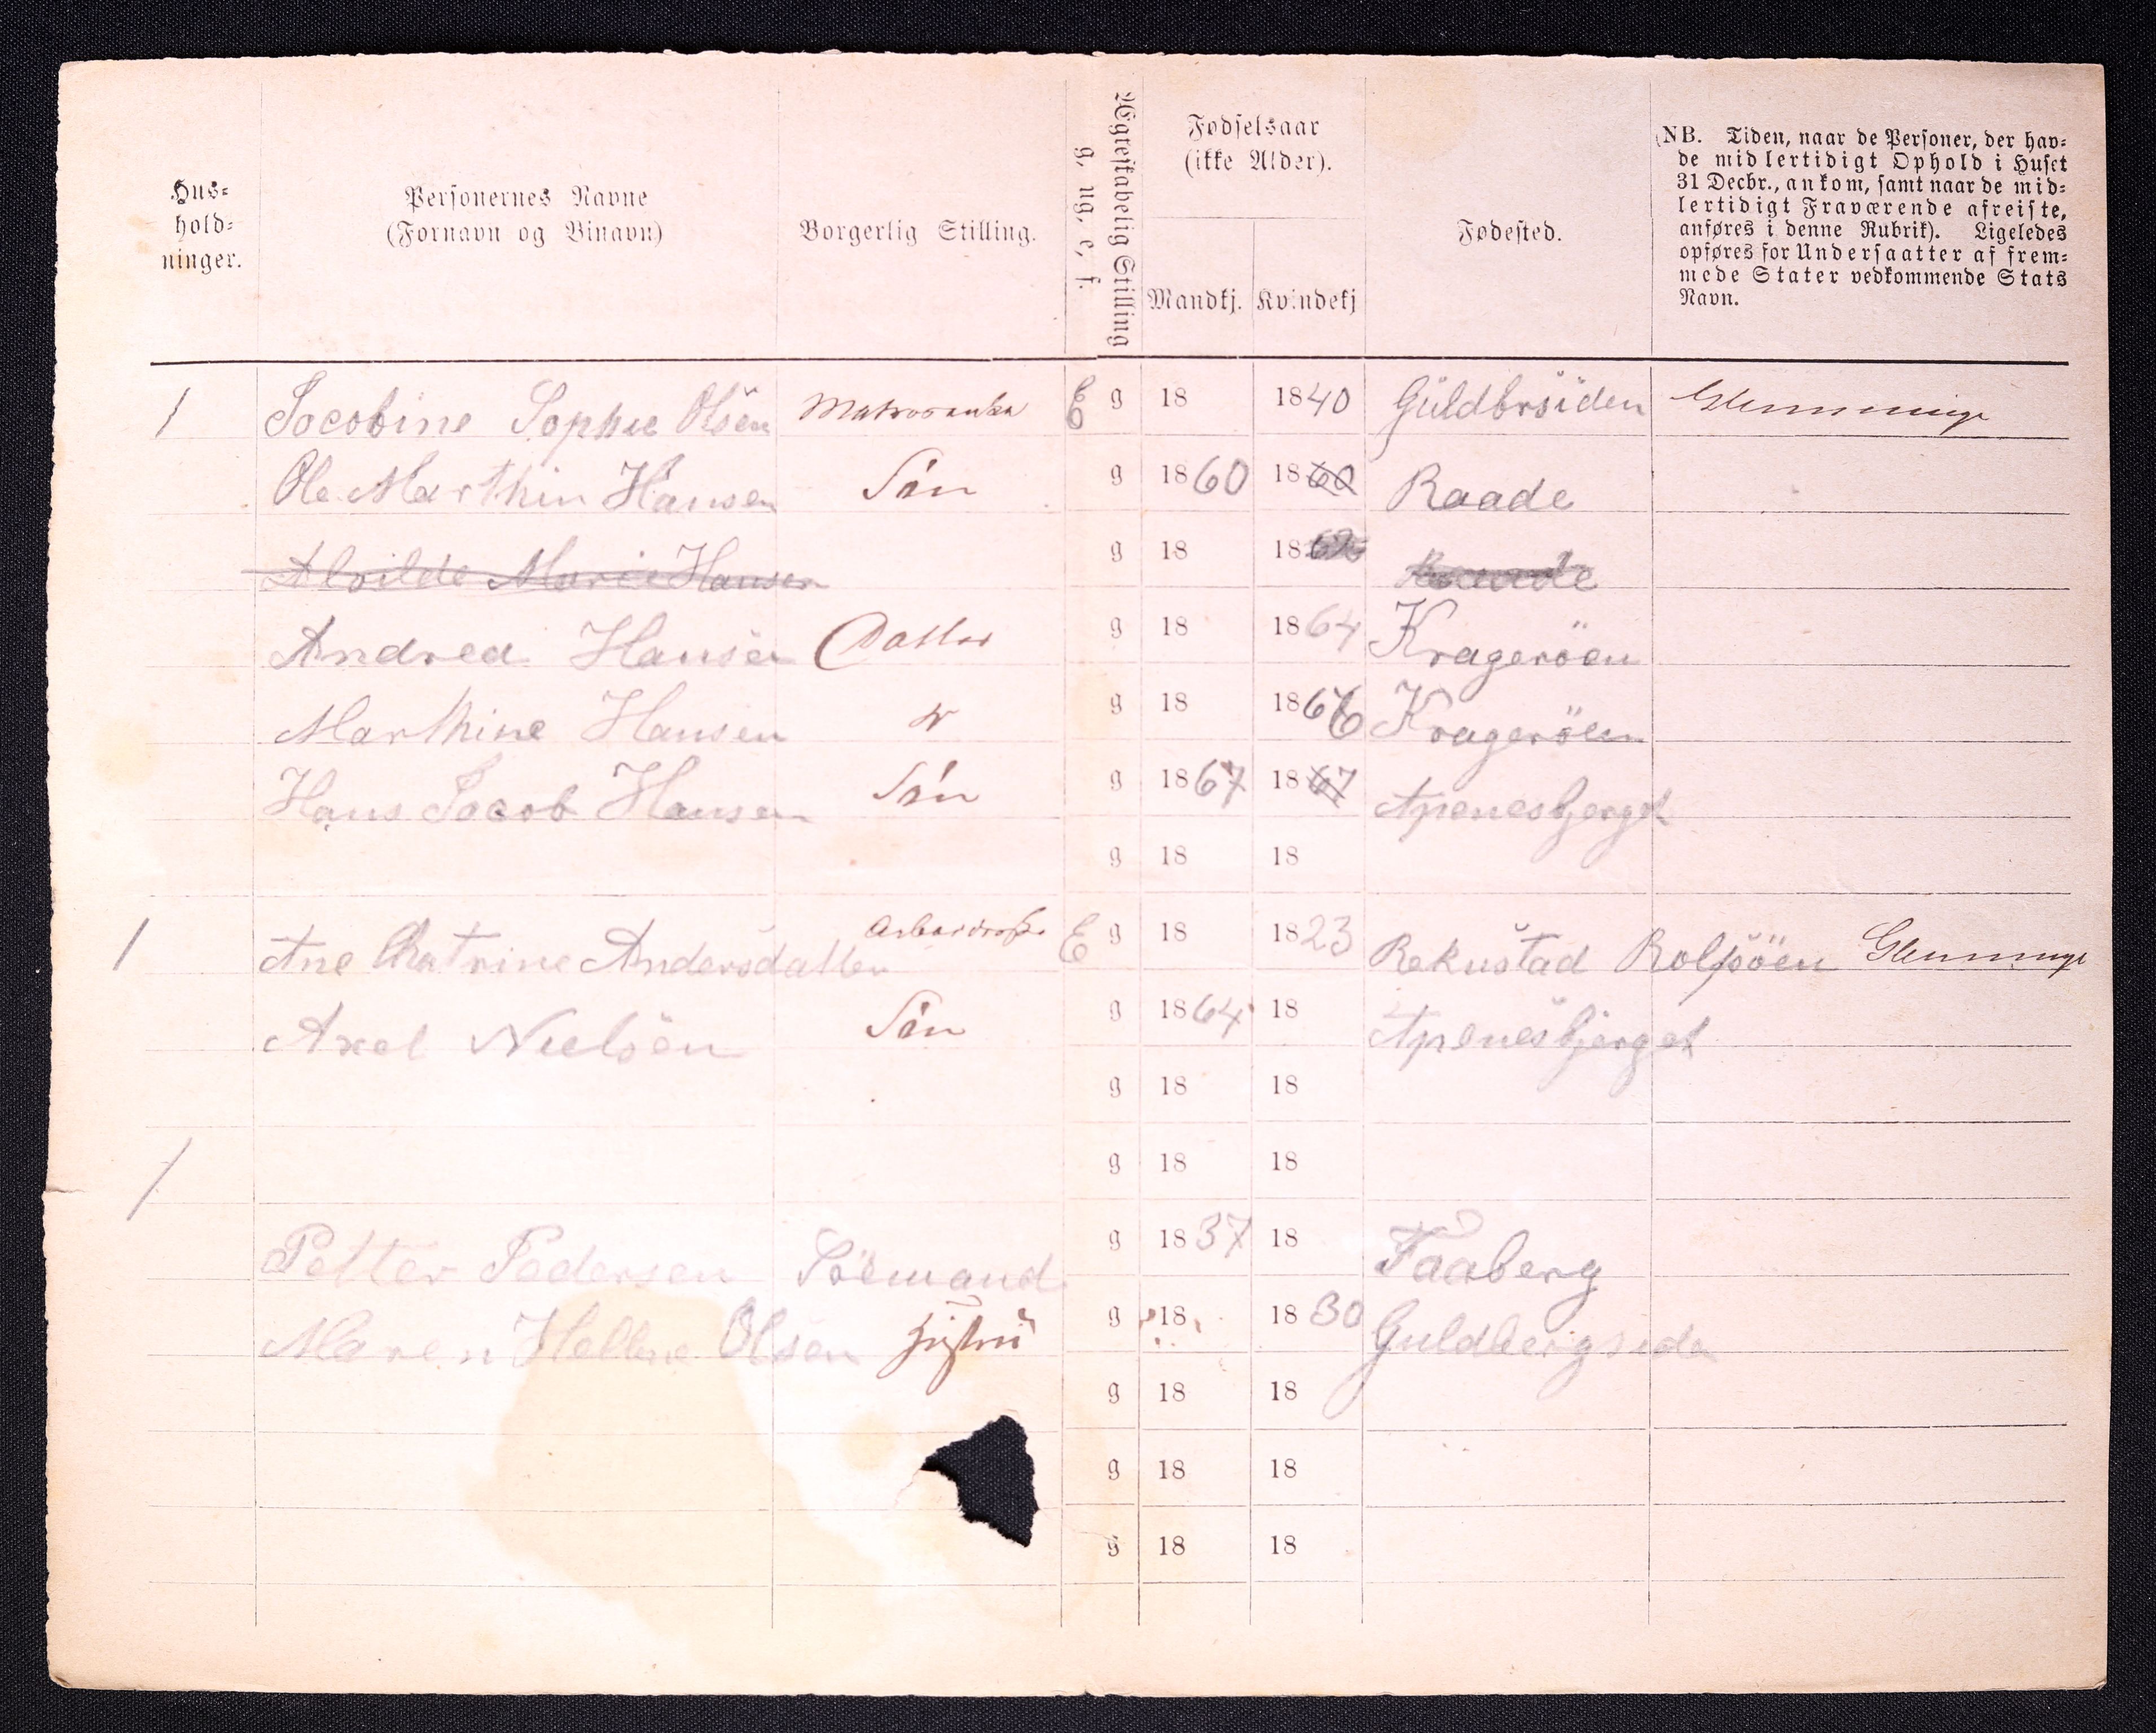 Hus-
hold-
ninger.
Personernes Navne
(Fornavn og Binavn)
Borgerlig Stilling.
Ægteskabelig Stilling
g, ug, e, f.
Fødselsaar
(ikke Alder).
Mandkj. Kvindekj
Fødested.
(NB. Tiden, naar de Personer, der hav-
de midlertidigt Ophold i Huset
31 Decbr., ankom, samt naar de mid-
lertidigt Fraværende afreiste,
anføres i denne Rubrik). Ligeledes
opføres for Undersaatter af frem-
mede Stater vedkommende Stats
Navn.
1 Jocobine Sophie Olsen E g 18 1840 Guldbrsiden Glemminge
Ole Marthin Hansen Sön g 1860 1860 Raade
Alvilde Marie Hansen g 18 1862 Raade
Andrea Hansen Datter g 18 1864 Krageröen
Marthine Hansen g 18 1866 Krageröen
Hans Jocob Hansen Sön g 1867 1867 Apenesbjerget
g 18 18
1 Ane Chatrine Andersdatter E g 18 1823 Rekustad Rolfsöen Glemminge
Axel Nielsen Sön g 1864 18 Apenesbjerget
g 18 18
1 g 18 18
Petter Pedersen Söemand g 1837 18 Faaberg
Maren Hellene Olsen Hustru g 18 1830 Guldbergsiden
g 18 18
g 18 18
g 18 18